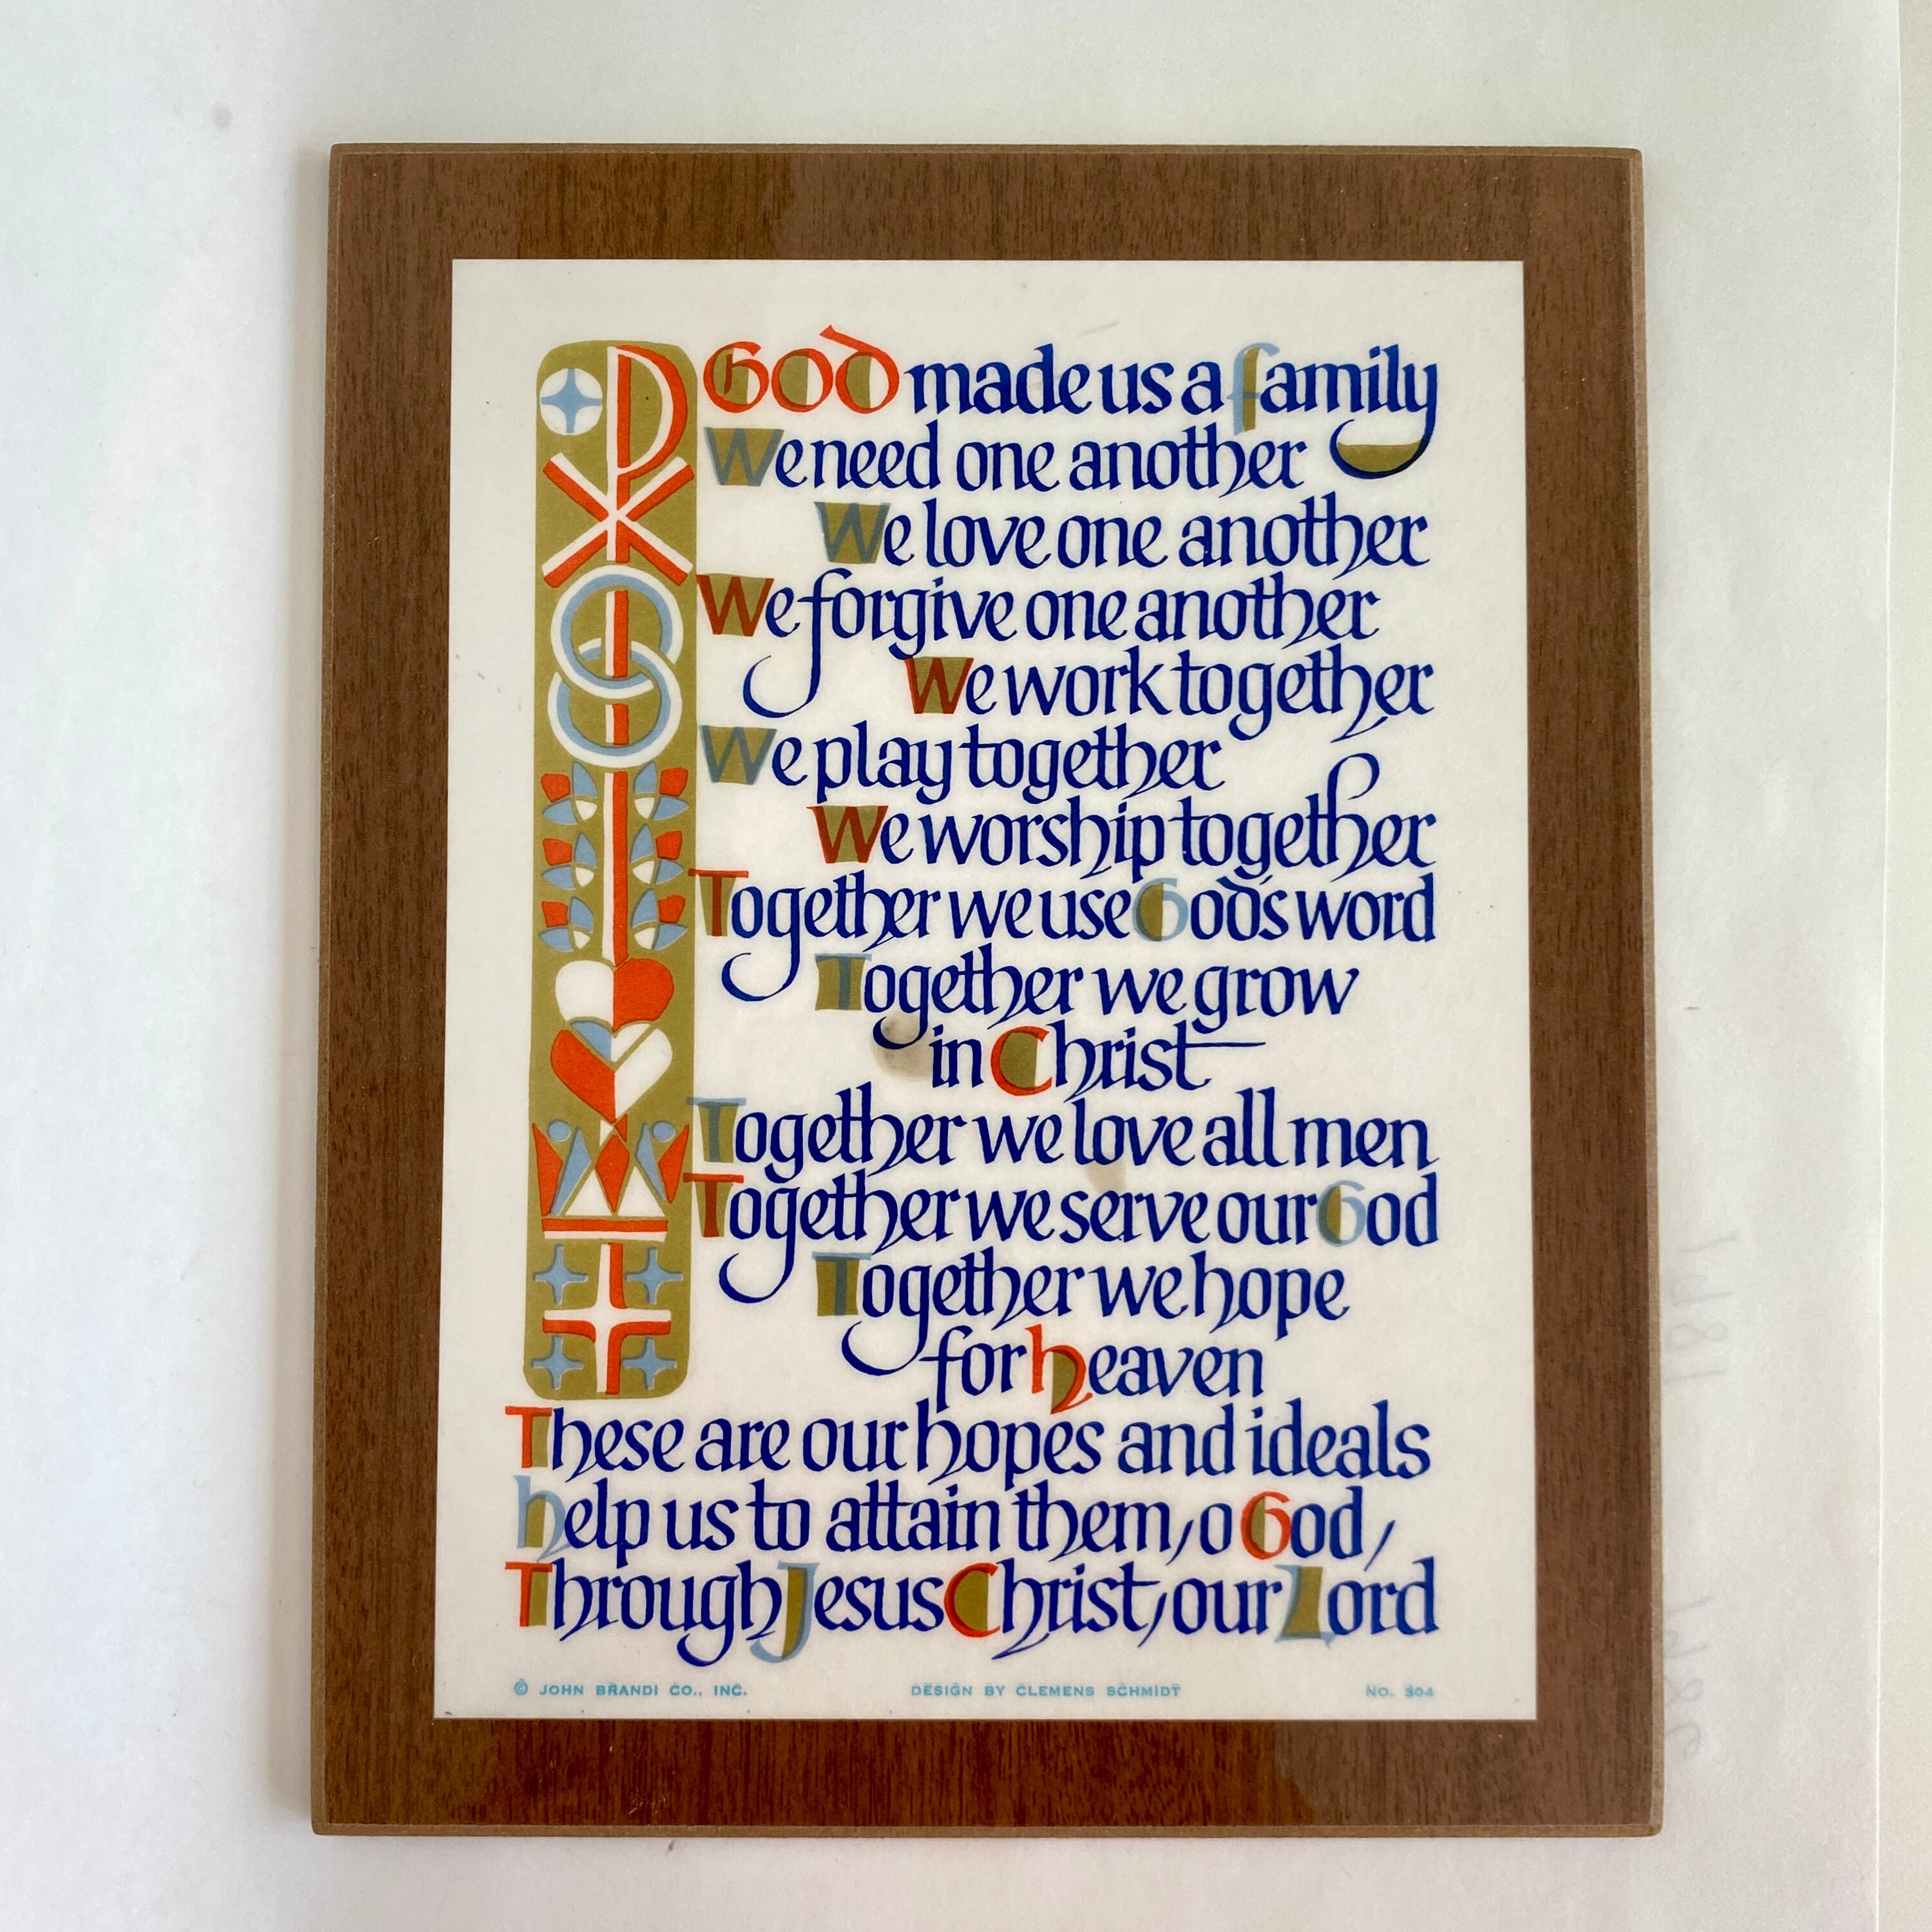 God made us a family
We need one another
We love one another
We forgive one another
We work together
We play together
We worship together
Together we use God's word
Together we grow
in Christ
Together we love all men
Together we serve our God
Together we hope
for heaven
These are our hopes and ideals
help us to attain them, o God,
Through Jesus Christ, our Lord
© JOHN BRANDI CO., INC. DESIGN BY CLEMENS SCHMIDT NO. 304